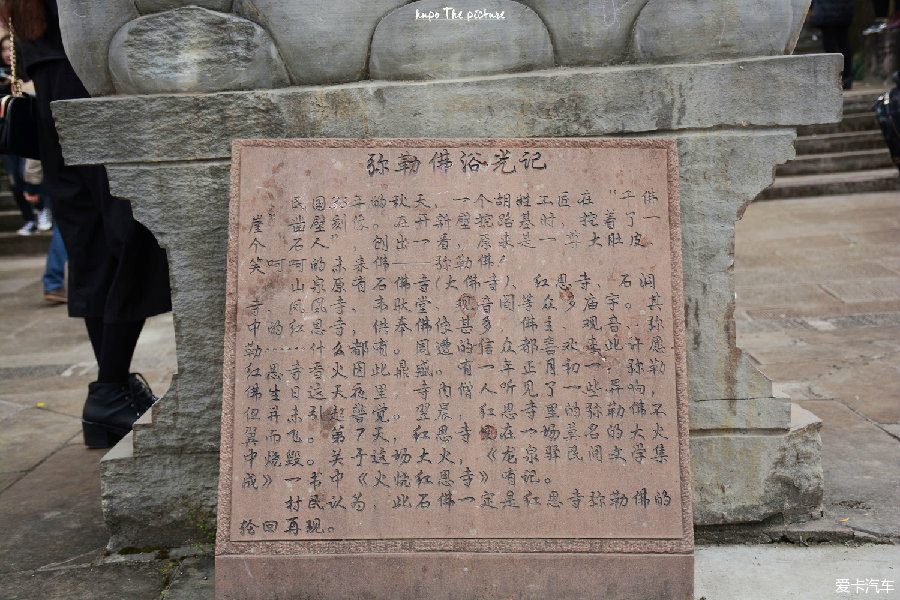 kupo The picture
弥勒佛浴光记
民国36年的秋天,一个胡姓工匠在"千佛
崖"凿壁刻像。在开新壁挖路基时,挖着了一
个"石人",创出一看,原来是一尊大肚皮、
笑呵呵的未来佛——弥勒佛!
山泉原有石佛寺(大佛寺)、红恩寺、石洞
寺、凤凰寺、来欧堂、观音阁等众多庙宇。其
中的红恩寺,供奉佛像甚多,佛主、观音、弥
勒……什么都有。周遭的信众都喜欢来此许愿
红恩寺香火因此鼎盛。有一年正月初一,弥勒
佛生日这天夜里,寺内僧人听见了一些异响,
但并未引起警觉。翌晨,红恩寺里的弥勒佛不
翼而飞。第7天,红恩寺因在一场莫名的大火
中烧毁。关于这场大火,《龙泉驿民间文学集
成》一书中《火烧红恩寺》有记。
村民认为,此石佛一定是红恩寺弥勒佛的
轮回再现。
爱卡汽车